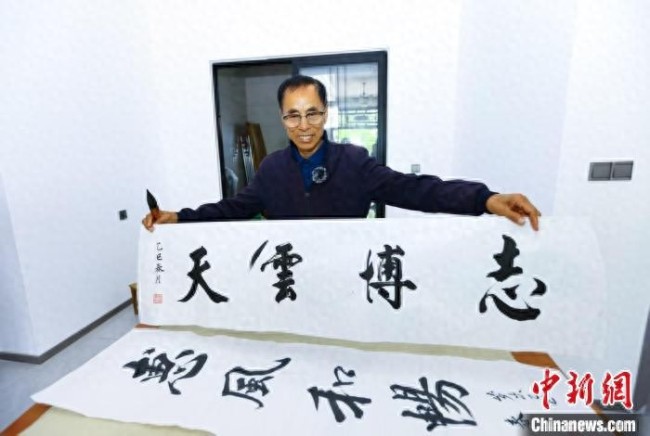 志博雲天
乙巳 月
惠風和暢
中新網
Chinanews.com